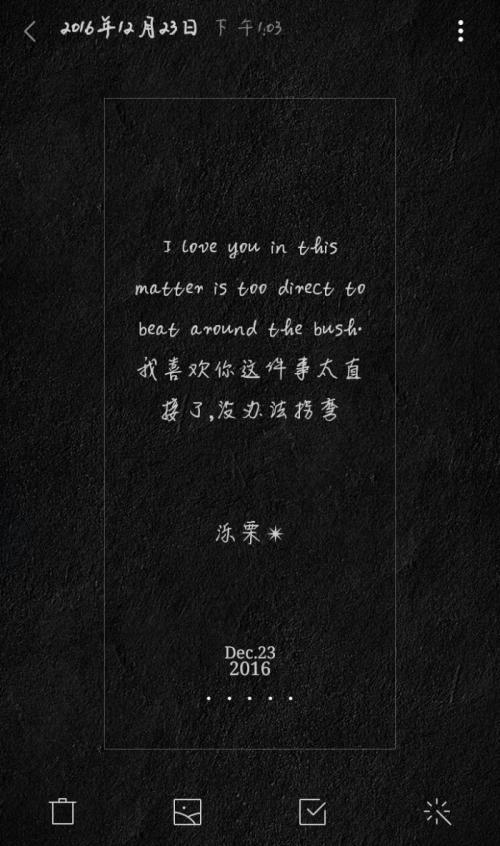 2016年12月23日 下午1:03
I love you in this
matter is too direct to
beat around the bush.
我喜欢你这件事太直
接了,没办法拐弯
泺栗✴
Dec.23
2016
• • • • •